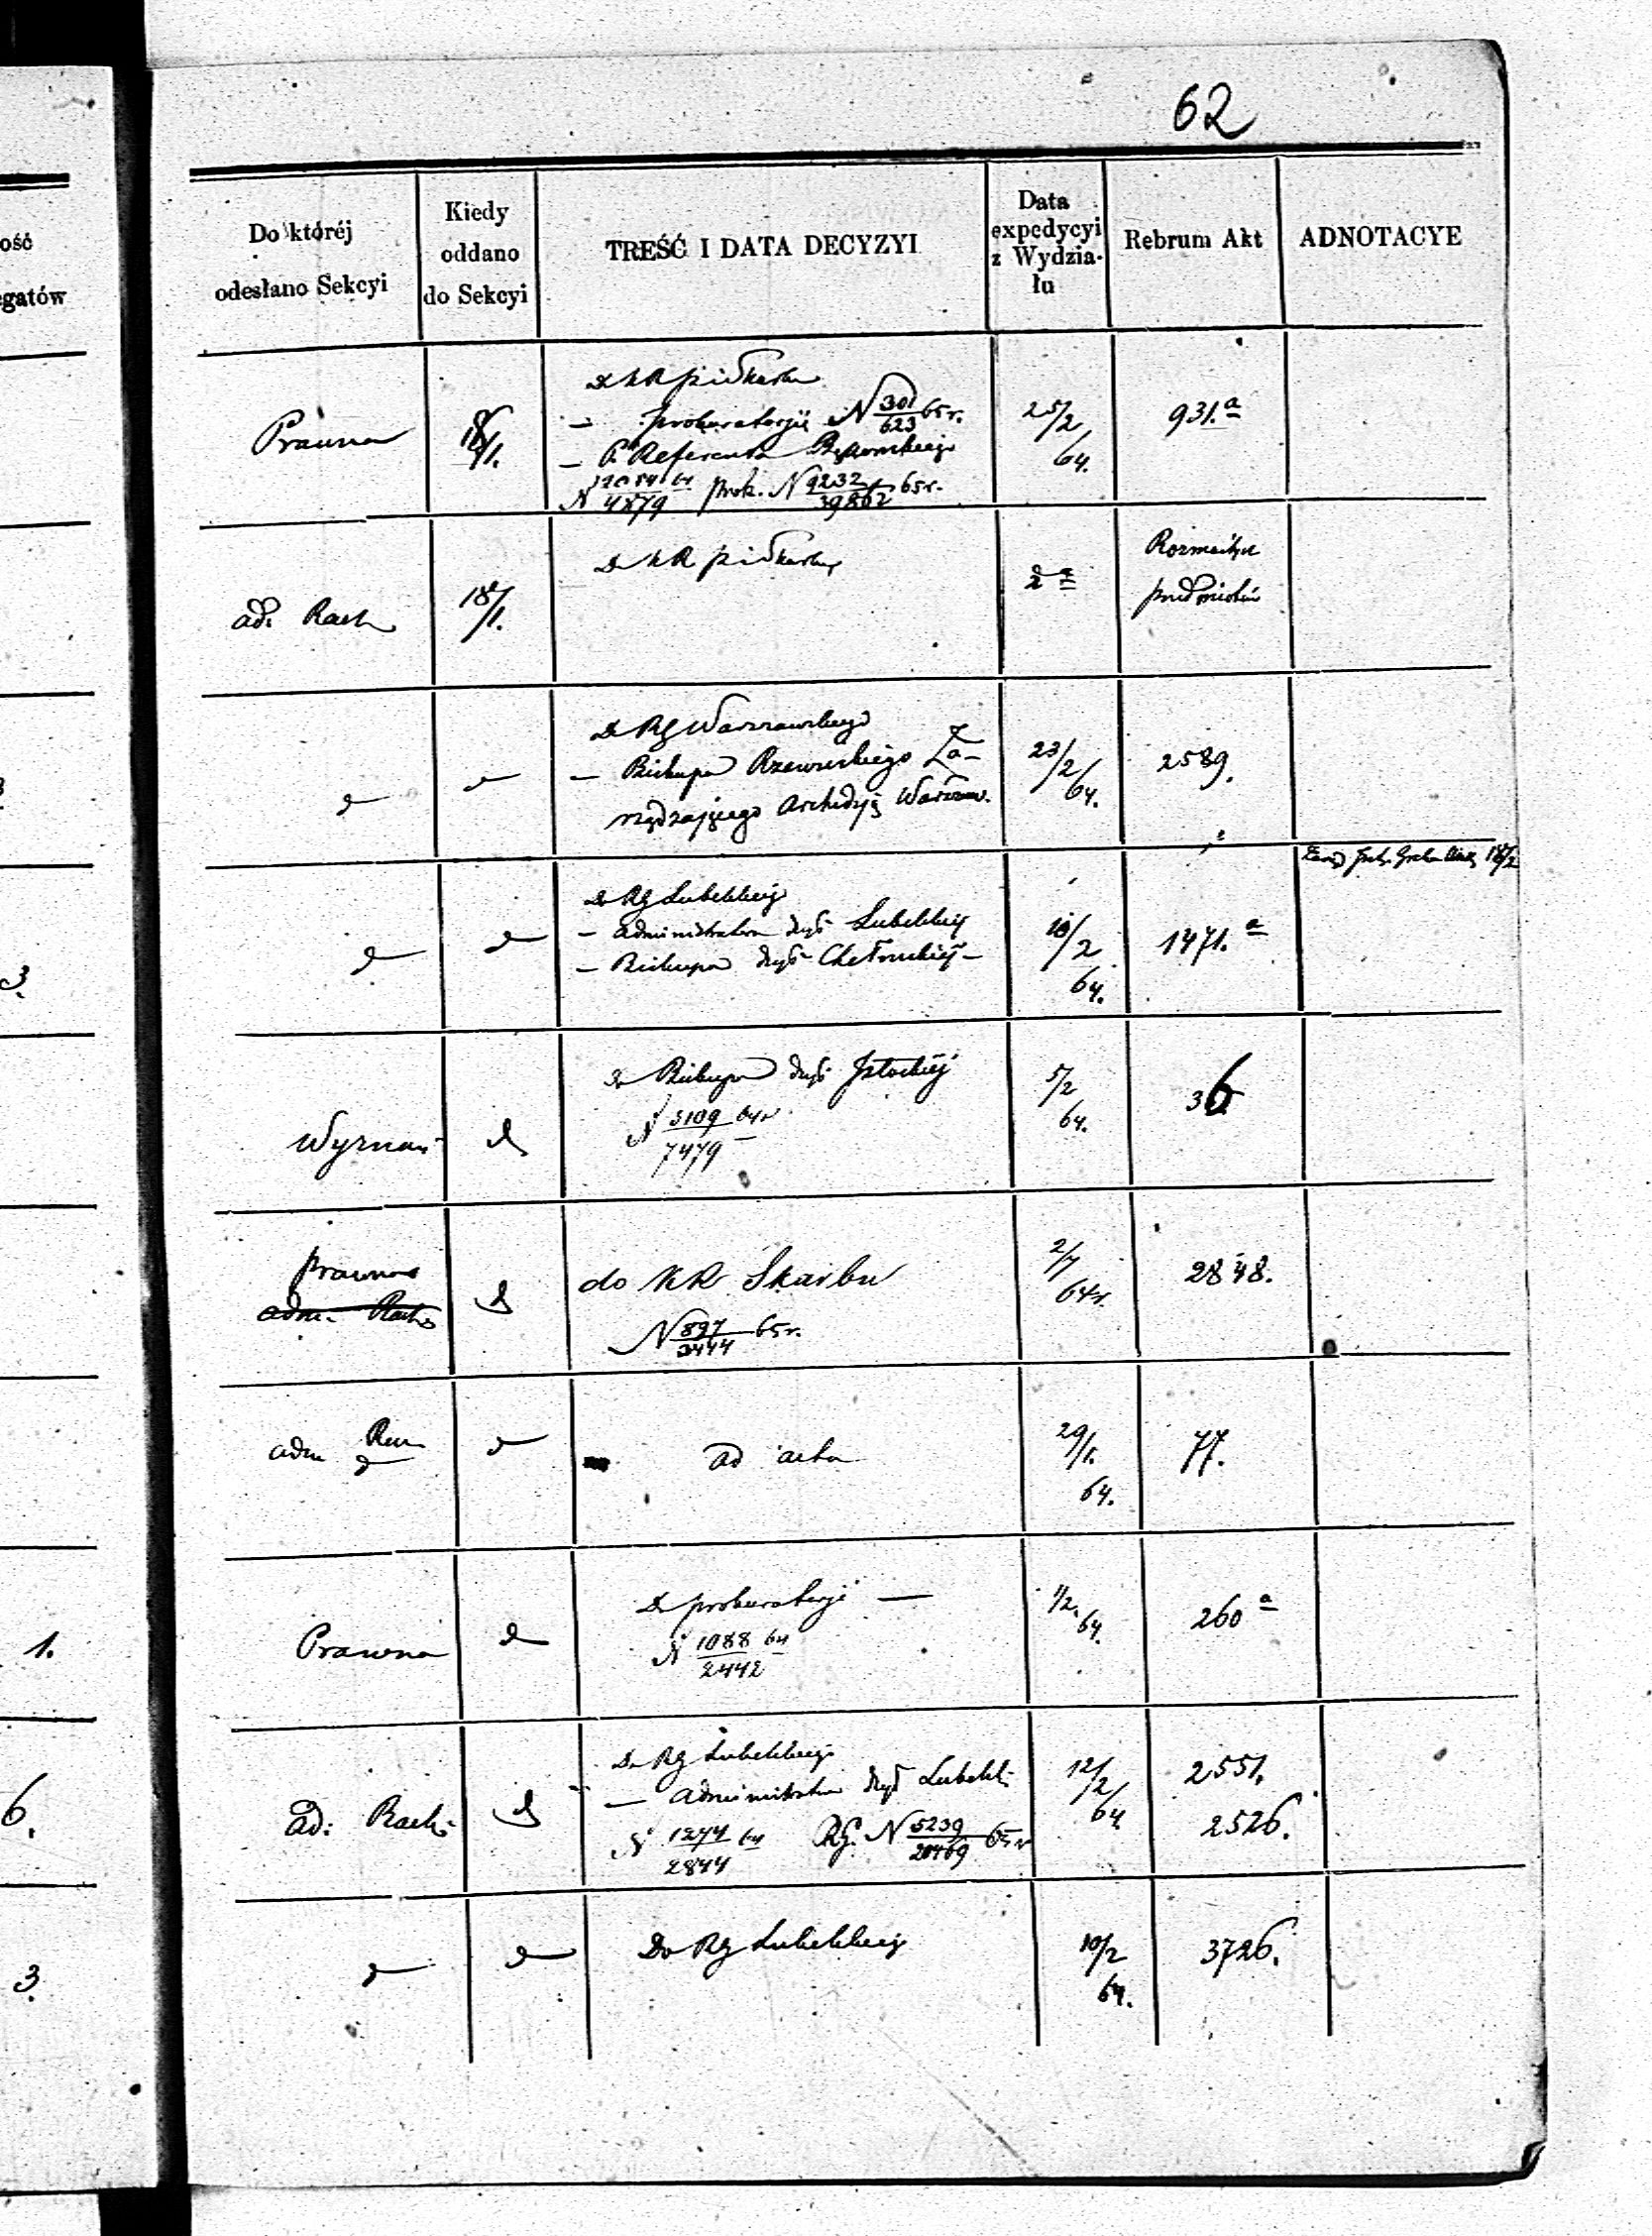 62
ość
egatów
Do któréj
odesłano Sekcyi
Kiedy
oddano
do Sekcyi
TREŚĆ I DATA DECYZYI
Data
expedycyi
z Wydzia-
łu
Rebrum Akt
ADNOTACYE
Prawna
18/1.
Do KR
— prokuratoryi N 301/623 65 r.
— P. Referenta
N 4879 prok. N 9232/39862 65 r.
25/2 64.
931.a
ad: Rach
18/1.
Do KR
Rozmaitych
przedmiotów
Do RG Warszawskiego
— Biskupa Rzewuskiego Za-
rządzającego Archidyą Warszaw.
23/2 64.
2589.
18/2
Do RG Lubelskiego
— Administratora dyé Lubelskiej
— Biskupa dyé Chełmskiéj —
10/2
64.
1471.a
3.
Wyznań
do Biskupa dyé Płockiéj
N 3109/7479 64 r.
5/2
64.
36
Prawna
adm. Rach
do KR Skarbu
N 897/3444 65 r.
2/7
64 r.
2848.
adm
ad acta
29/1.
64.
77.
1.
Prawna
Do prokuratoryi —
N 1088/2442 64
1/2.
64.
260 a
6.
ad: Rach:
Do RG Lubelskiego
— Administratora dyé Lubelsk:
N 1274/2844 64 RG. N 5239/20469 65 r
12/2
64
2551.
2526.
3.
Do RG Lubelskiego
10/2
64.
3726.